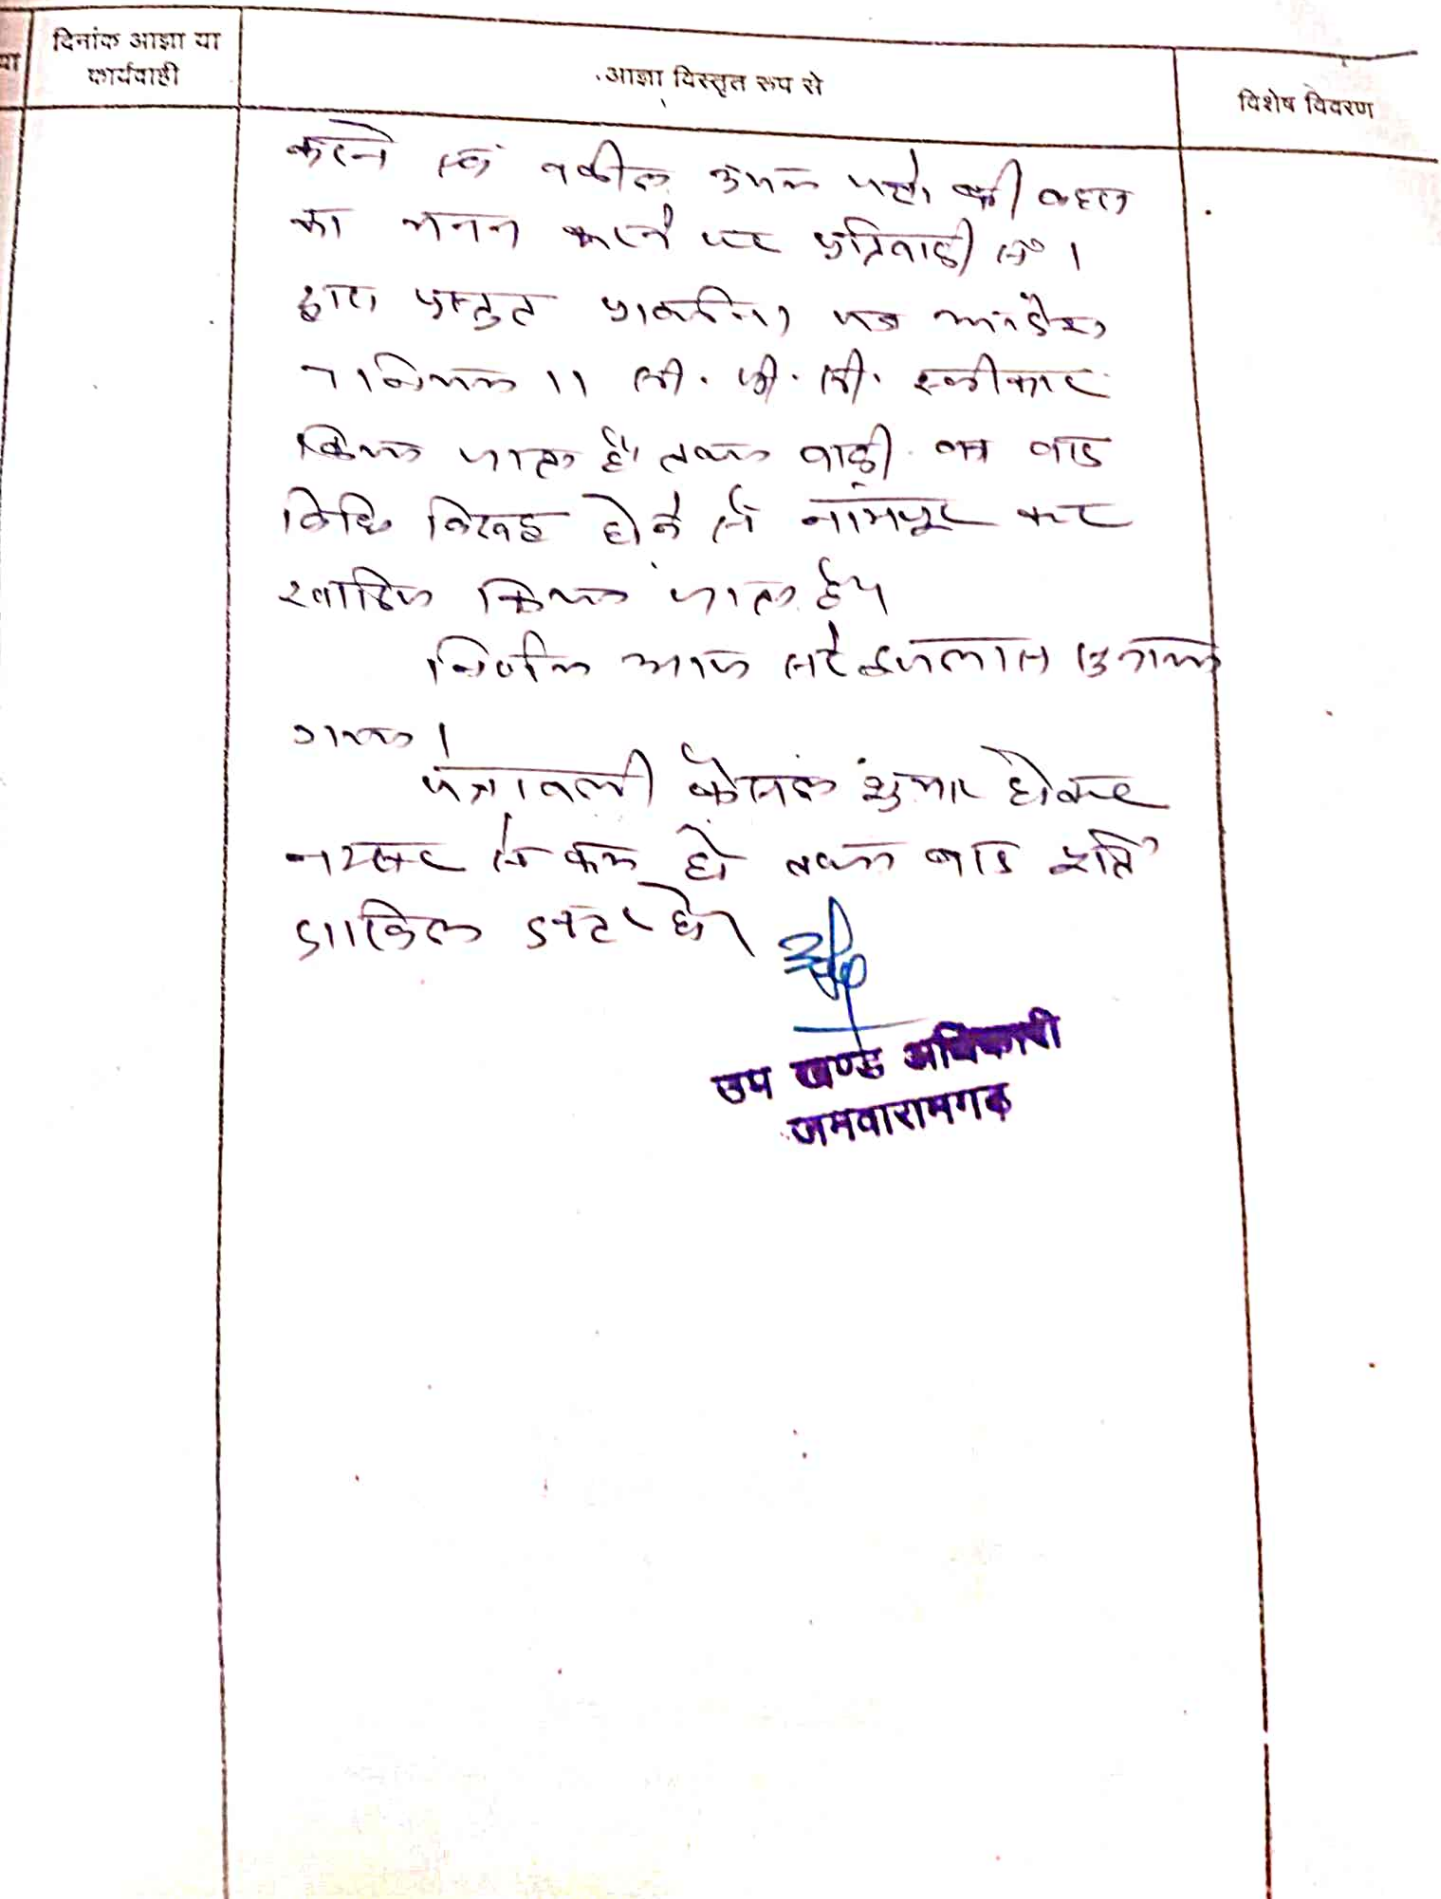 या
दिनांक आज्ञा या
कार्यवाही
आज्ञा विस्तृत रूप से
विशेष विवरण
करने एवं वकील उभय पक्षो की बहस
का मनन करने पर प्रतिवादी सं० 1
द्वारा प्रस्तुत प्रार्थना पत्र आदेश
7 नियम 11 सी. पी. सी. स्वीकार
किया जाता है। तथा वादी का वाद
विधि विरुद्ध होने से नामंजूर कर
खारिज किया जाता है।
निर्णय आज सरे इजलास सुनाया
गया।
पत्रावली फैसल शुमार होकर
नम्बर से कम हो तथा बाद पूर्ति
दाखिल दफ्तर हो।
उप खण्ड अधिकारी
जमवारामगढ़